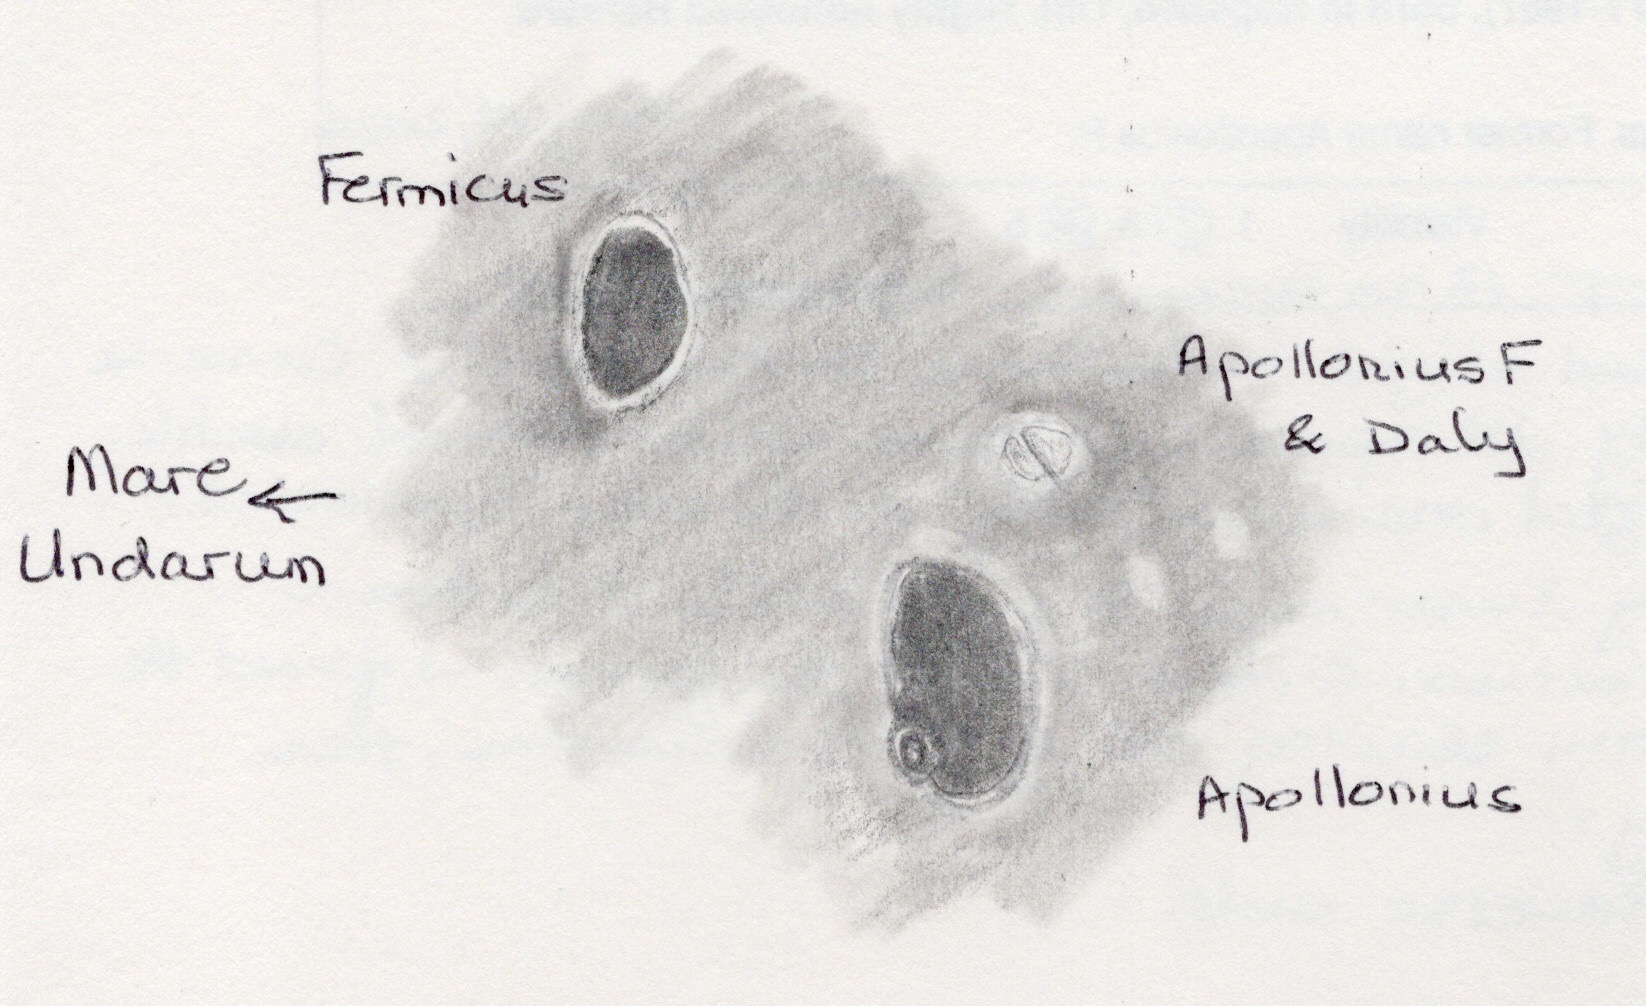 Fermicus
Apollonius F
& Daly
Mare
Undarum
Apollonius